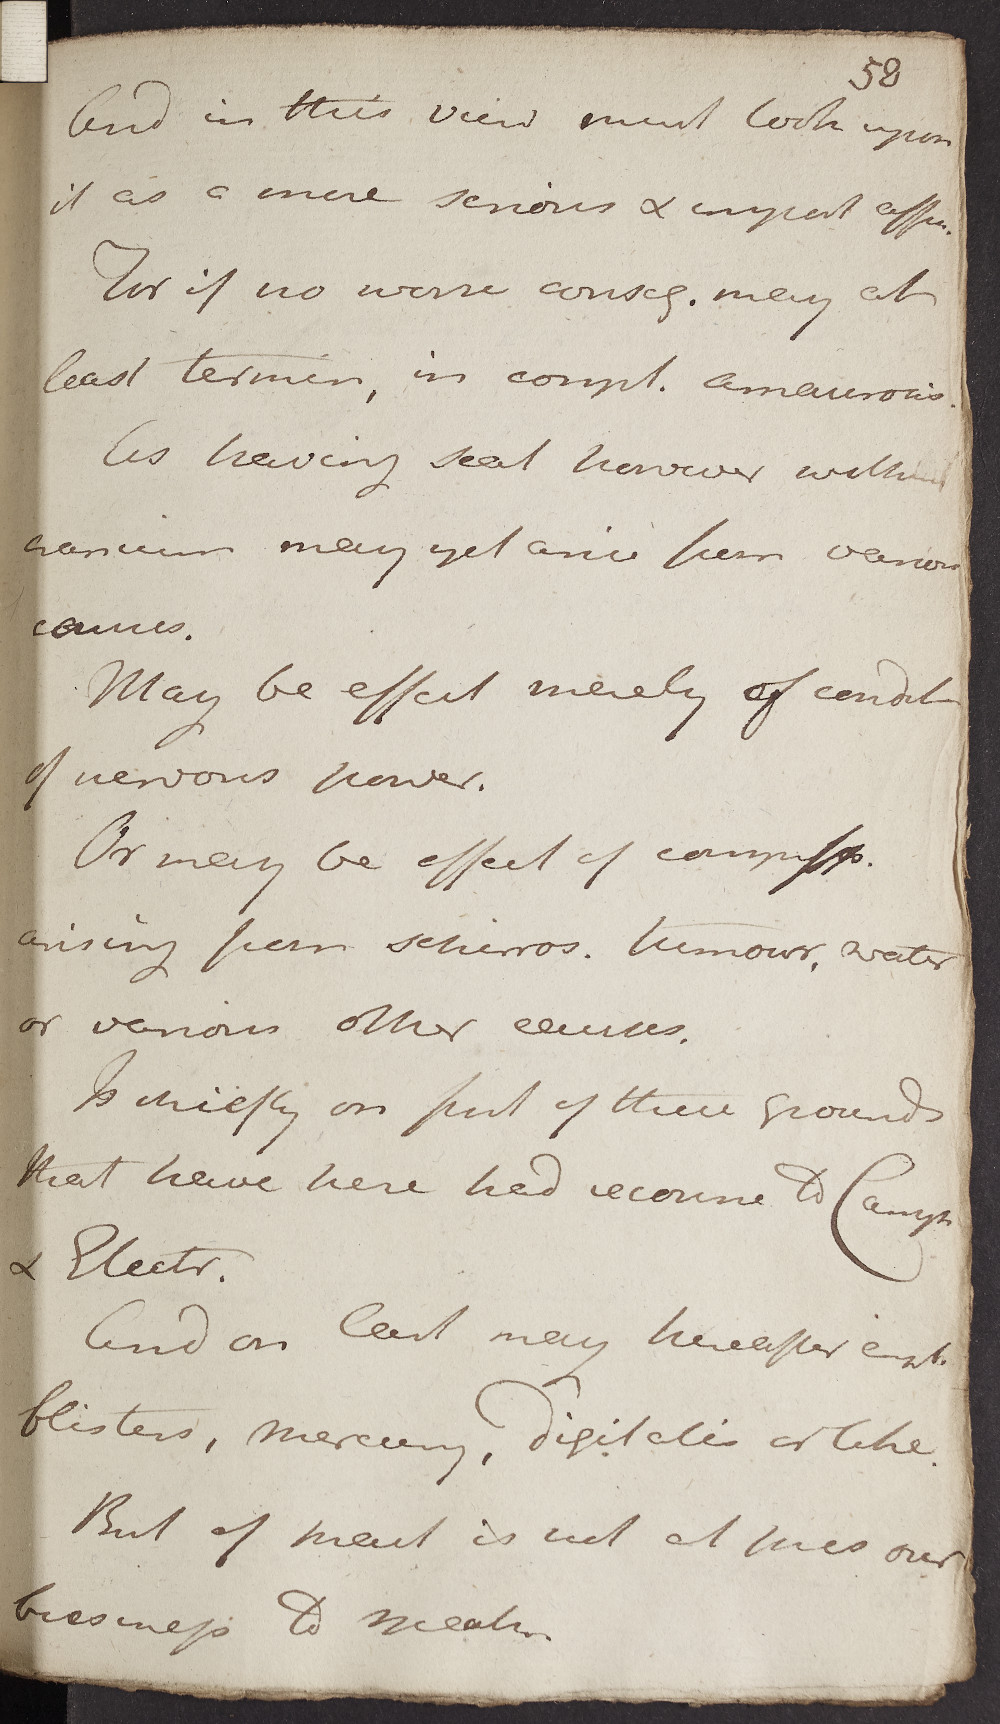 58
And in this view must look upon
it as a more serious & import affn.
For if no worse conseq. may at
least termin, in compl. amaurosis.
As having seat however within
cranium may yet arise from various
causes.
May be effect merely of condit
of nervous power.
Or may be effect of compress.
arising from schirros. tumour, water
or various other causes.
Is chiefly on first of these grounds
that have here had recourse to Camph
& Electr.
And on last may hereafter empl.
blisters, mercury, digitalis or like.
But of treat is not at pres our
business to speak